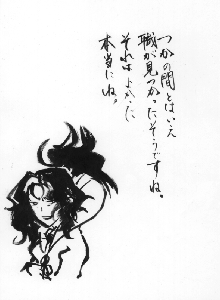 つかの間とはいえ
職が見つかったそうですね。
それは よかった
本当にね。